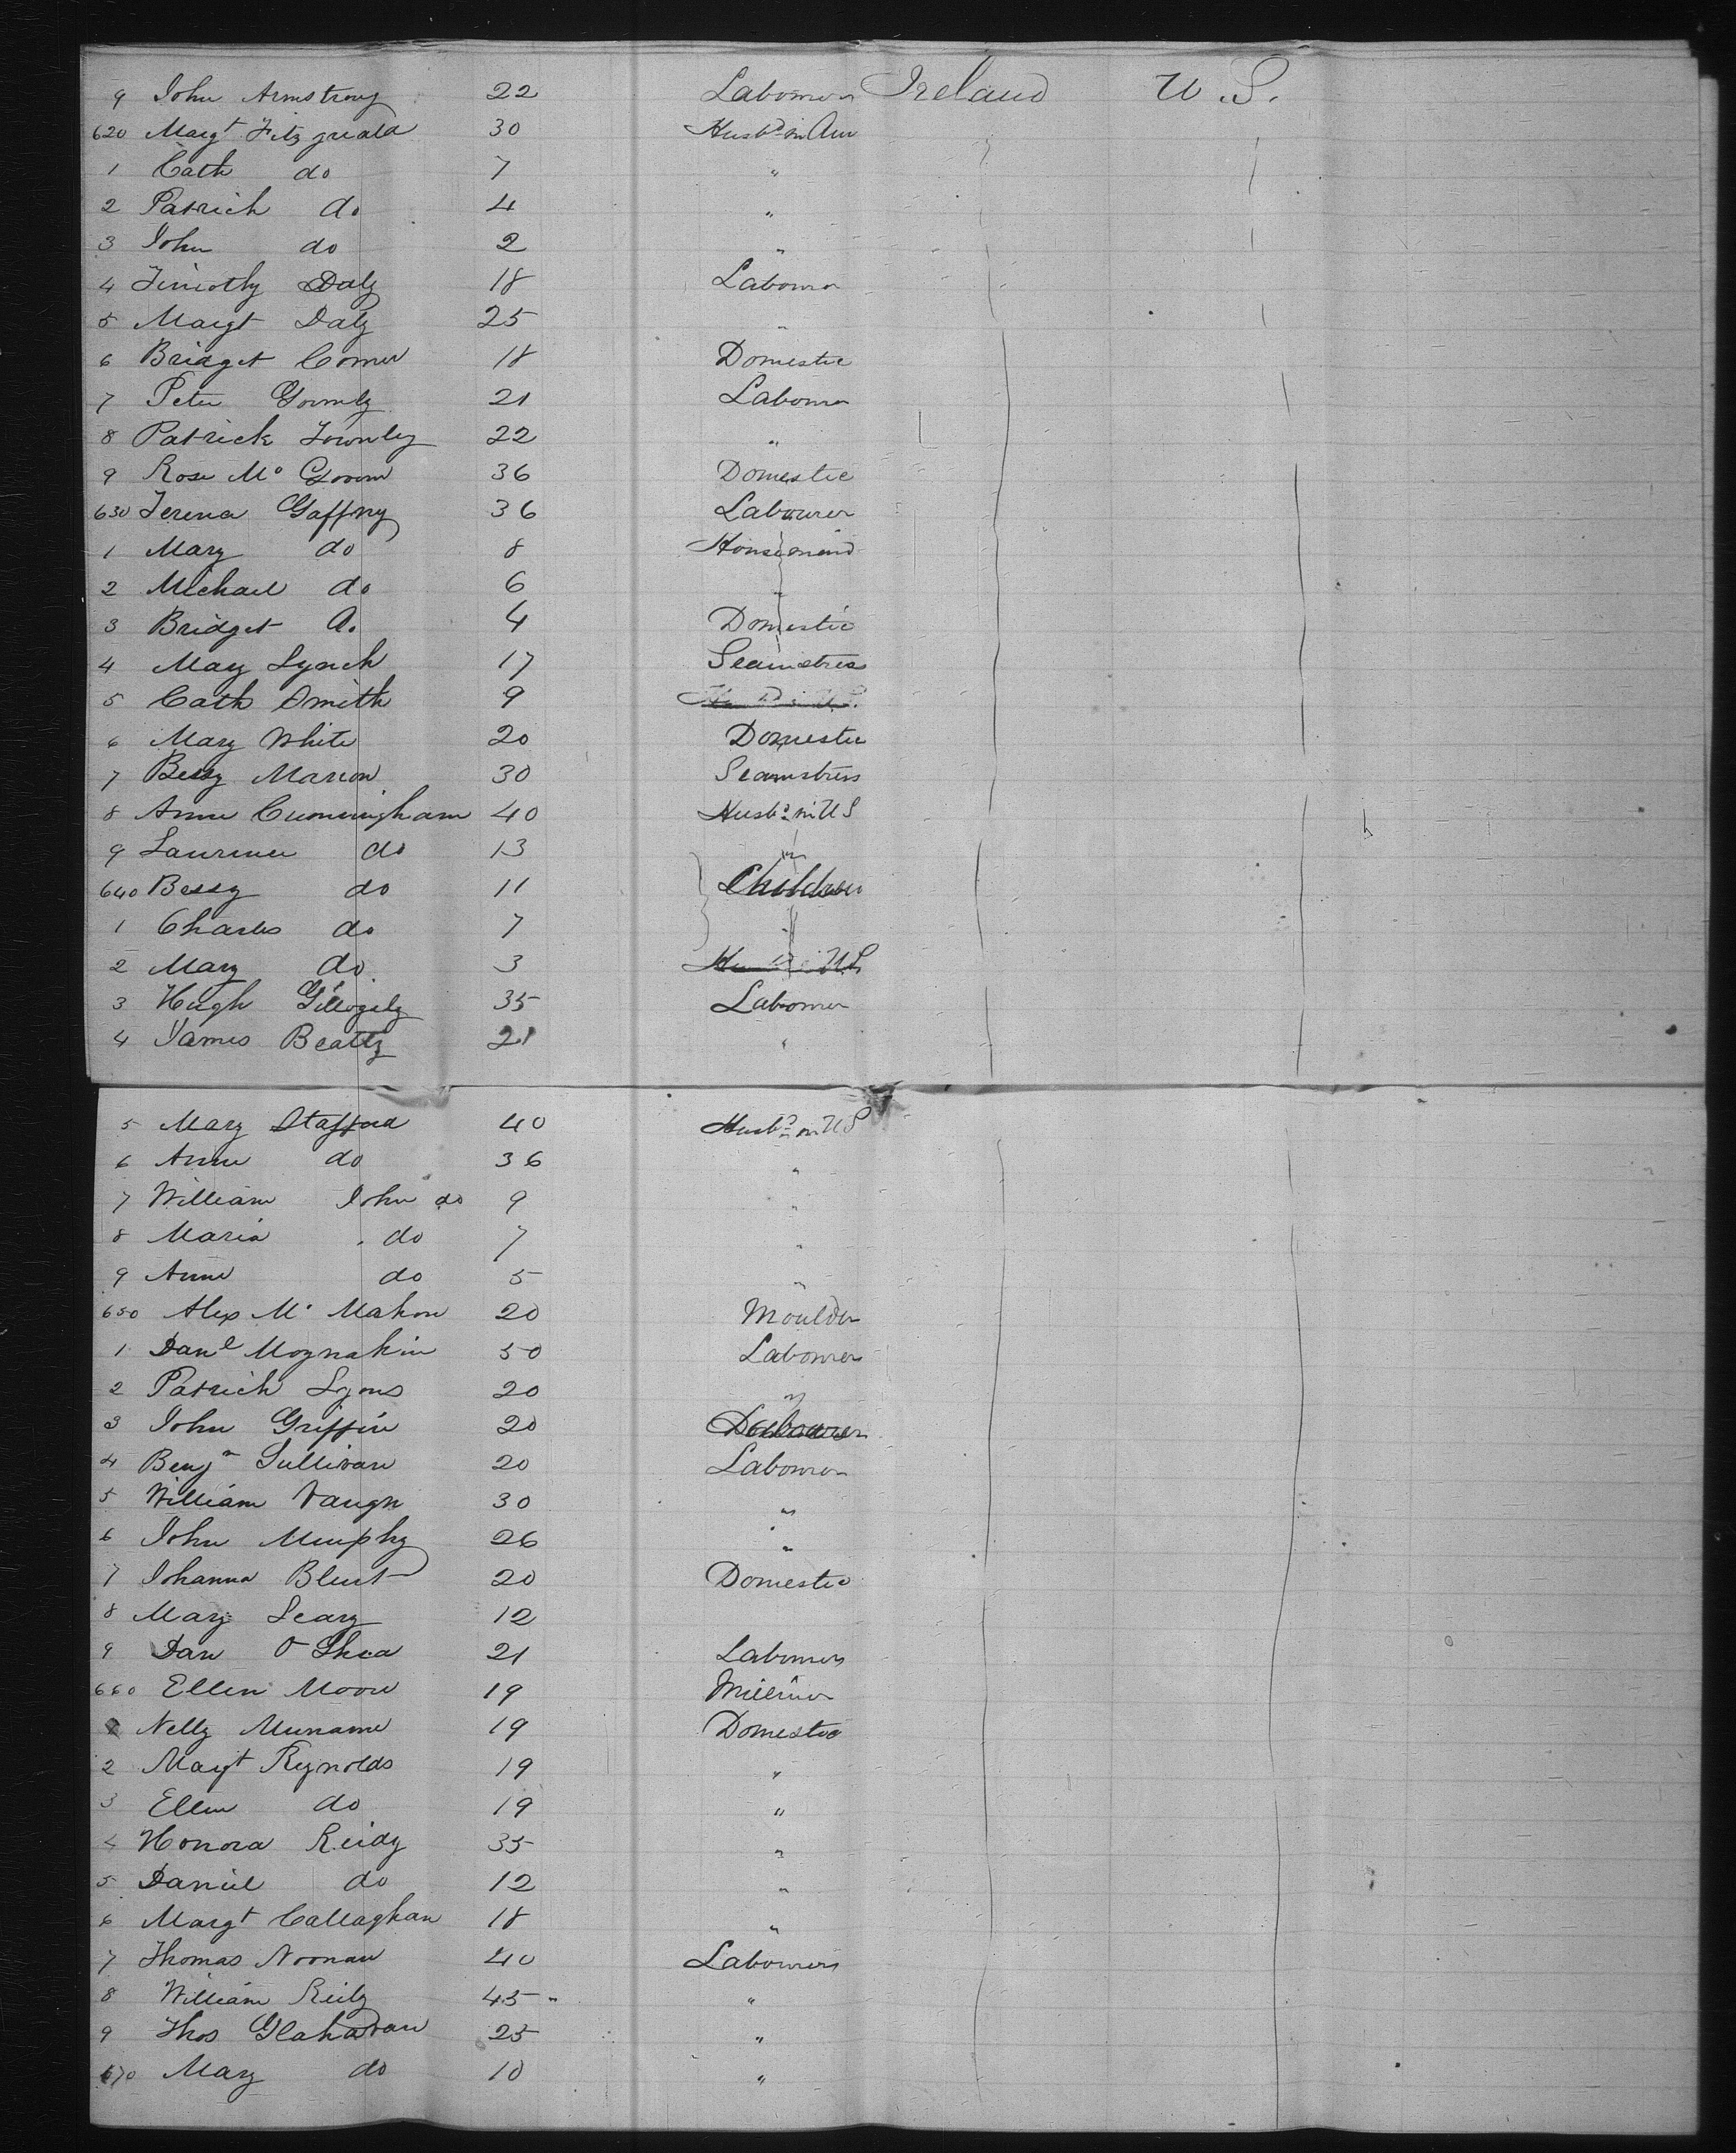 9 John Armstrong 22 Labourer Ireland U.S.
620 Margt Fitzgerald 30 Husbd in Am
1 Cath do 7 "
2 Patrick do 4 "
3 John do 2 "
4 Timothy Daly 18 Labourer
5 Margt Daly 25 "
6 Bridget Comer 18 Domestic
7 Peter Gormly 21 Labourer
8 Patrick Townly 22 "
9 Rose Mc Govern 36 Domestic
630 Terence Gaffny 36 Labourer
1 Mary do 8 Housemaid
2 Michael do 6 "
3 Bridget do 4 Domestic
4 Mary Lynch 17 Seamstress
5 Cath Smith 9
6 Mary White 20 Domestic
7 Bessy Marion 30 Seamstress
8 Anne Cunningham 40 Husbd in US
9 Laurence do 13 "
640 Bessy do 11 Children
1 Charles do 7 "
2 Mary do 3 US
3 Hugh Gillogily 35 Labourer
4 James Beatty 21 "
5 Mary Stafford 40 Husbd in US
6 Anne do 36 "
7 William John do 9 "
8 Maria do 7 "
9 Anne do 5 "
650 Alex Mc Mahon 20 Moulder
1 Danl Moynahin 50 Labourer
2 Patrick Lyons 20 "
3 John Griffin 20
4 Benjn Sullivan 20 Labourer
5 William Vaugn 30 "
6 John Murphy 26 "
7 Johanna Blunt 20 Domestic
8 Mary Leary 12
9 Dan O Shea 21 Labourer
660 Ellen Moore 19 Milliner
Nelly Murname 19 Domestic
2 Margt Reynolds 19 "
3 Ellen do 19 "
4 Honora Reidy 35 "
5 Daniel do 12 "
6 Margt Callaghan 18 "
7 Thomas Noonan 40 Labourers
8 William Reily 45 "
9 Thos Glahavan 25 "
670 Mary do 10 "